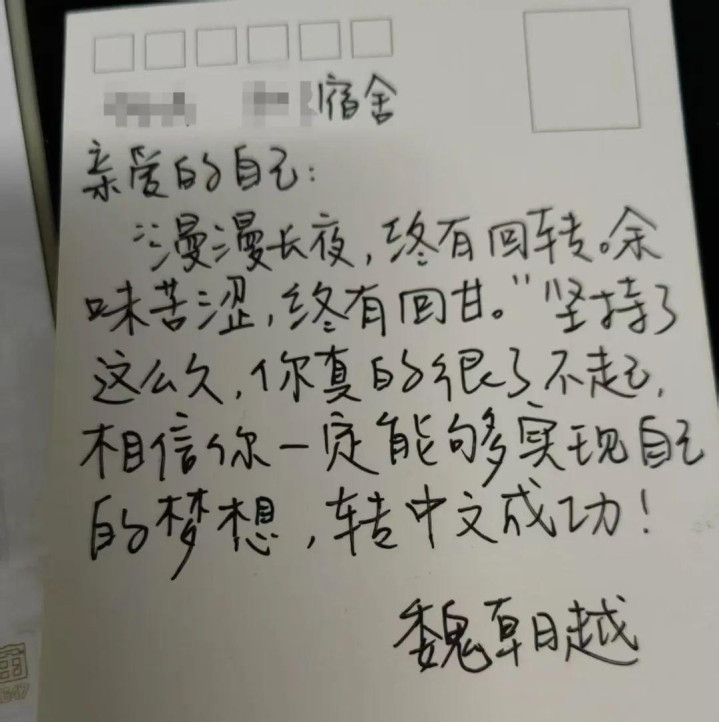 宿舍
亲爱的自己：
“漫漫长夜，终有回转。余
味苦涩，终有回甘。”坚持了
这么久，你真的很了不起，
相信你一定能够实现自己
的梦想，转中文成功！
魏朝越